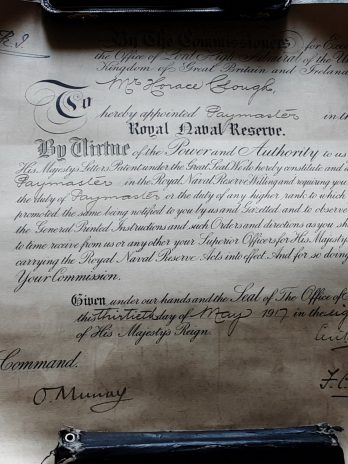 By The Commissioners for Exe
the Office of Lord High Admiral of the U
Kingdom of Great Britain and Ireland
To Mr Horace Clough
hereby appointed Paymaster in the
Royal Naval Reserve.
By Virtue of the Power and Authority to us
His Majesty's Letters Patent under the Great Seal, We do hereby constitute and a
Paymaster in the Royal Naval Reserve Willing and requiring you
the duty of Paymaster or the duty of any higher rank to which
promoted, the same being notified to you by us and Gazetted, and to observe
the General Printed Instructions and such Orders and directions as you sh
to time receive from us or any other your Superior Officers for His Majesty
carrying the Royal Naval Reserve Acts into effect. And for so doing
Your Commission.
Given under our hands and the Seal of The Office of
this thirtieth day of May 1917 in the eig
of His Majesty's Reign.
Command.
O. Murray